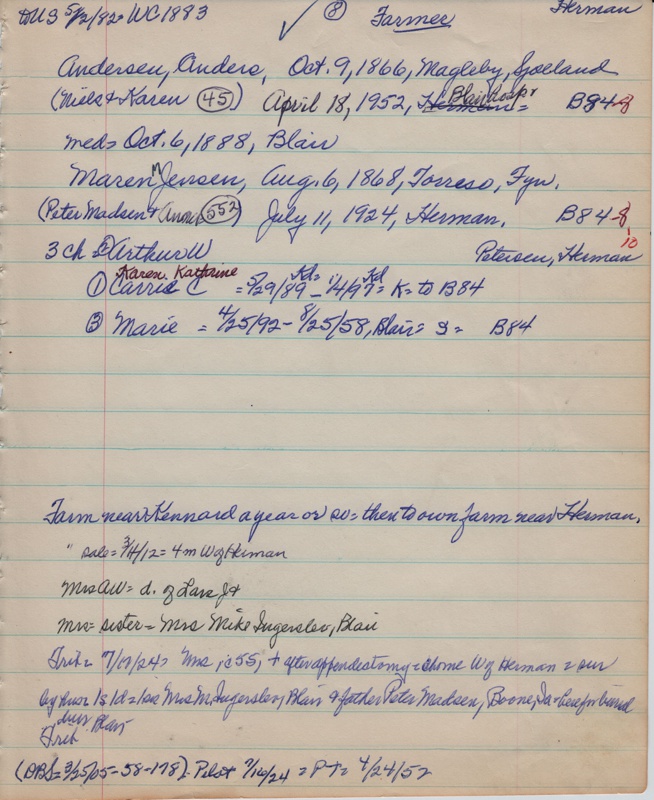 to US 5/2/82 = WC 1883 ✓ ⑧ Farmer Herman
Andersen, Anders, Oct. 9, 1866, Magleby, Sjoelland
(Niels & Karen 45) April 18, 1952, Herman= Blair hosp B84-8
med= Oct. 6, 1888, Blair
Maren M Jensen, Aug. 6, 1868, Torreso, Fyn.
(Peter Madsen & 552) July 11, 1924, Herman. B84-8
10
3 ch = Arthur W Petersen, Herman
Karen Kathrine
① Carrie C = 5/29/89 Kd= - 1/4/97 Kd = K= to B84
③ Marie = 4/25/92 - 8/25/58, Blair = S = B84
Farm near Kennard a year or so = then to own farm near Herman.
" sale = 3/4/12 = 4 m W of Herman
Mrs AW = d. of Lars J &
Mrs = sister = Mrs Mike Ingerslev, Blair
Trib = 7/17/24 = Mrs, 55, + after appendectomy = home W of Herman = sur
by hus 1s 1d = sis Mrs M Ingerslev, Blair & father Peter Madsen, Boone, Ia = buried
Blair
Trib
(DBS = 3/25/05-58-178). Pilot 7/16/24 = PT = 4/24/52